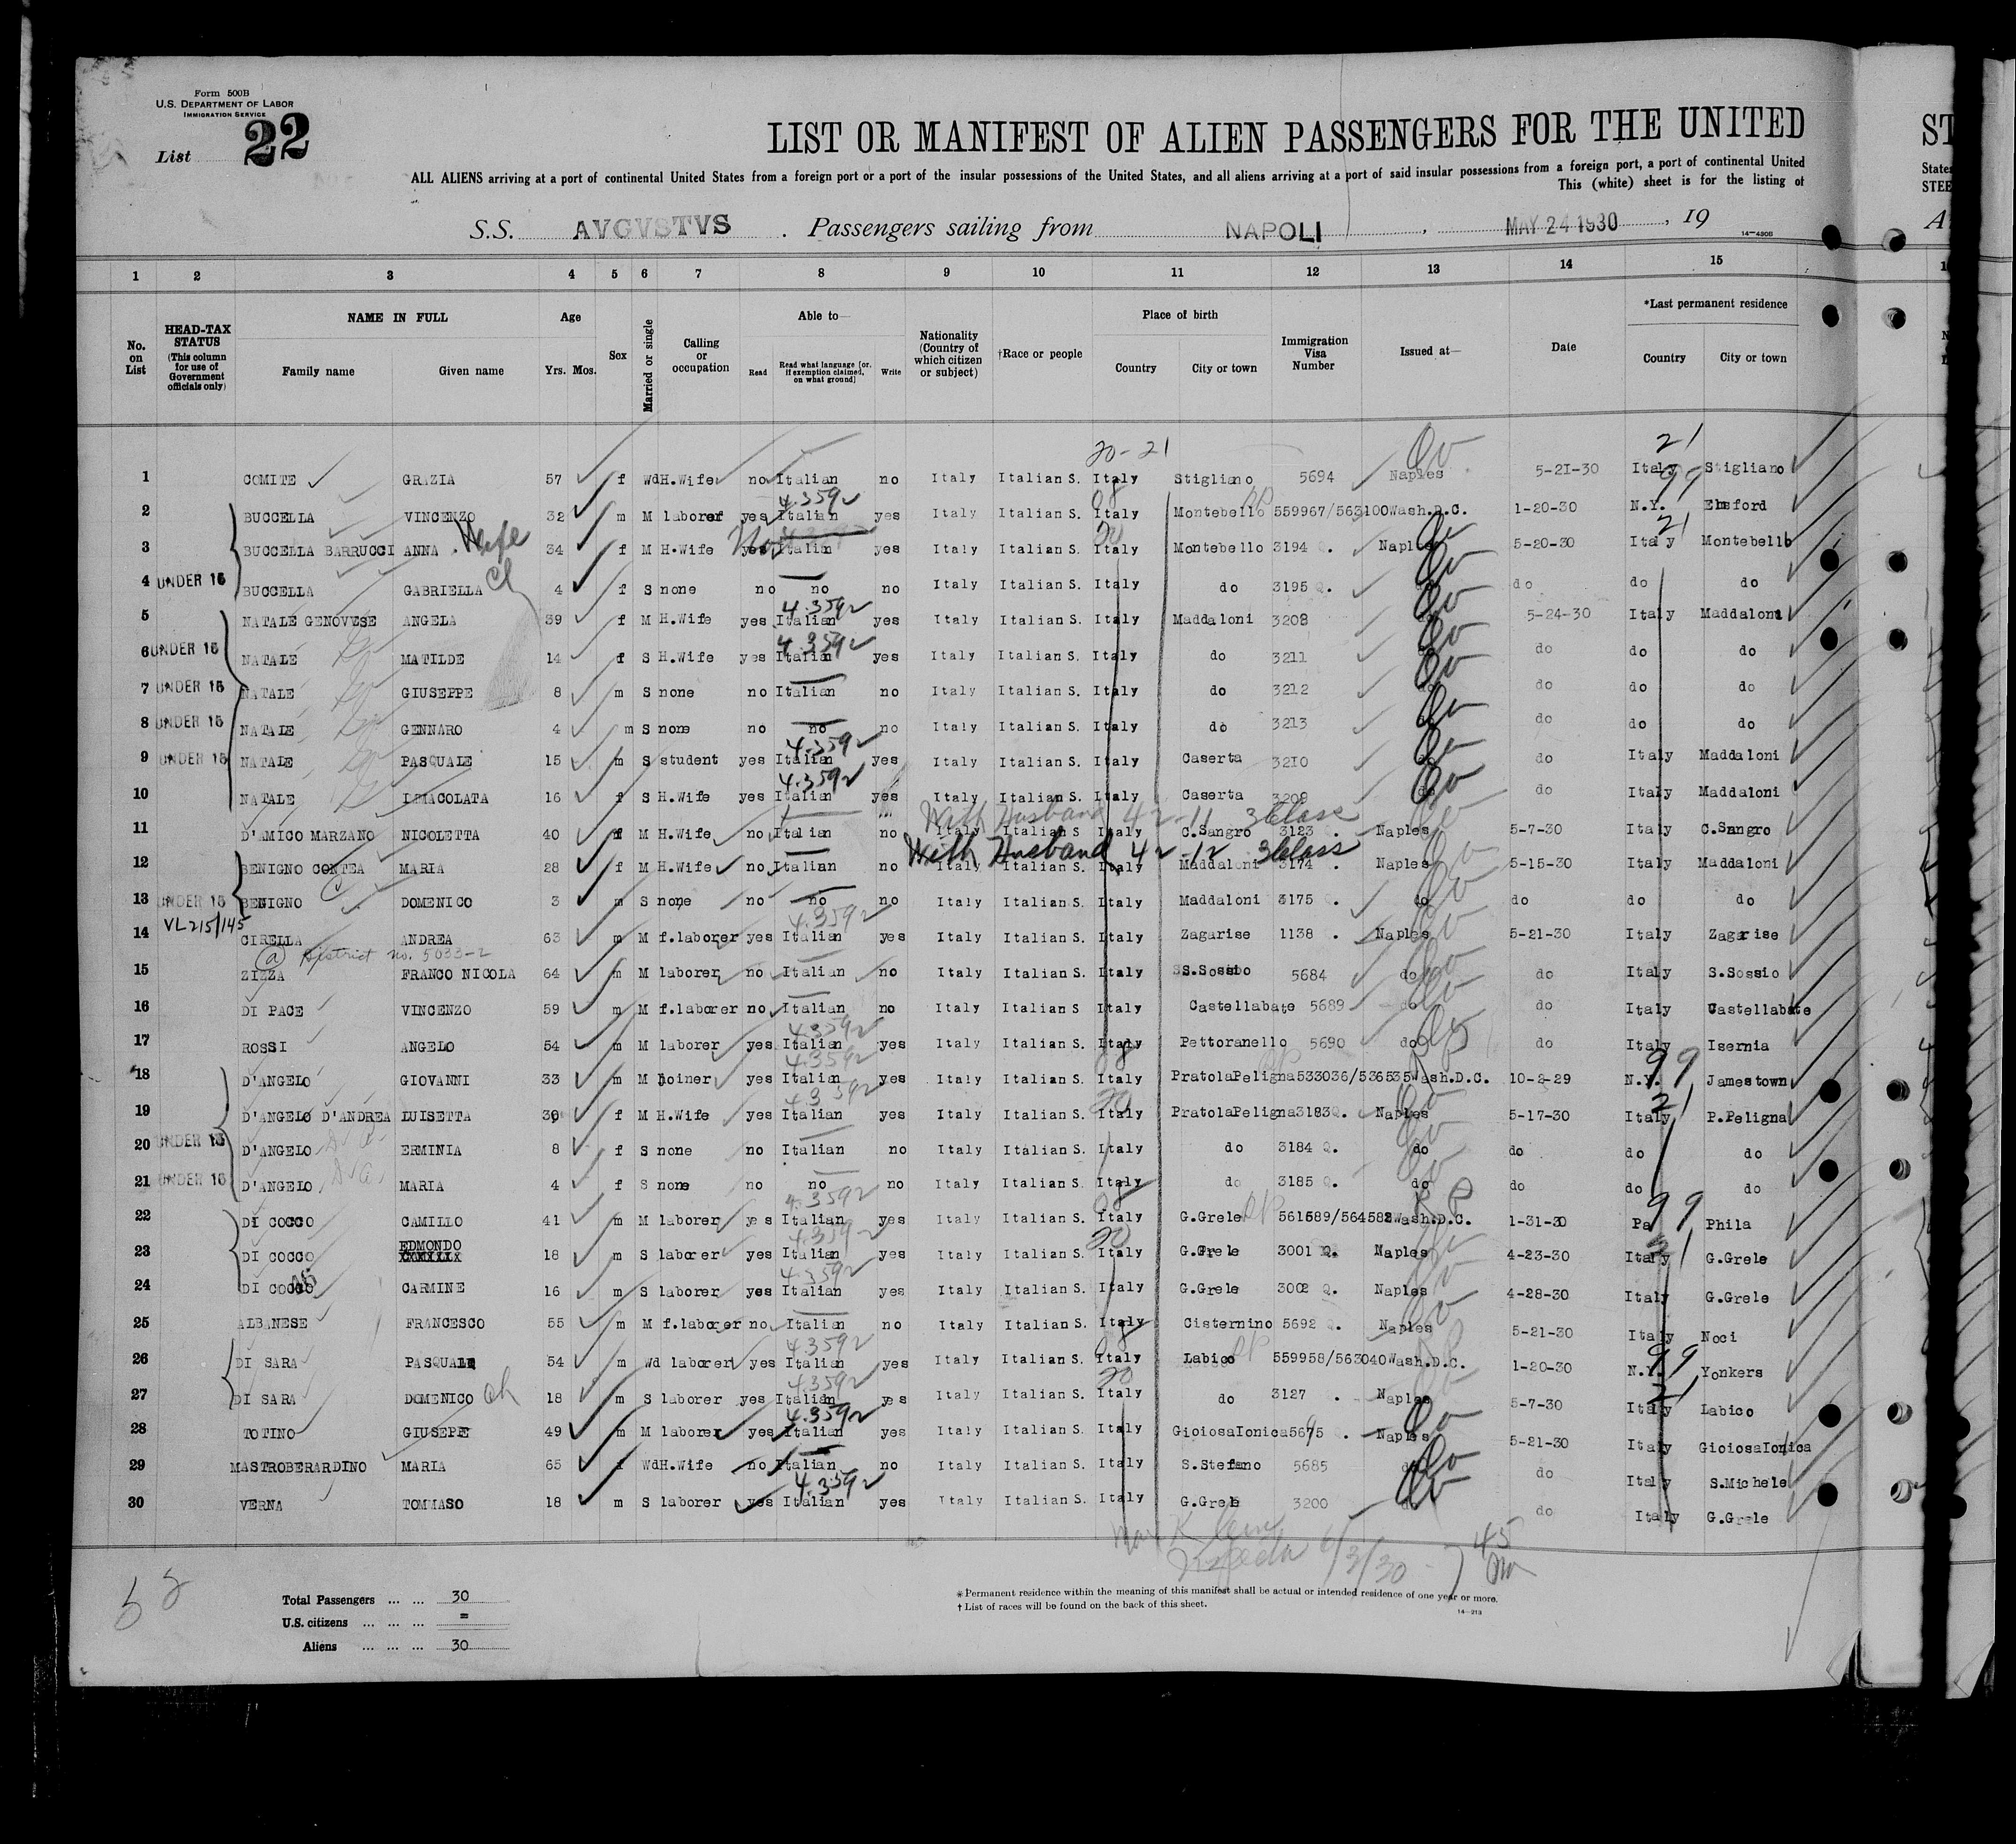 Form 500B
U.S. DEPARTMENT OF LABOR
IMMIGRATION SERVICE
List 22
LIST OR MANIFEST OF ALIEN PASSENGERS FOR THE UNITED
ALL ALIENS arriving at a port of continental United States from a foreign port or a port of the insular possessions of the United States, and all aliens arriving at a port of said insular possessions from a foreign port, a port of continental United
This (white) sheet is for the listing of
S.S. AVGVSTVS . Passengers sailing from NAPOLI , MAY 24 1930 , 19
14-430B
1 2 3 4 5 6 7 8 9 10 11 12 13 14 15
No. on List
HEAD-TAX STATUS (This column for use of Government officials only)
NAME IN FULL Family name Given name
Age Yrs. Mos.
Sex
Married or single
Calling or occupation
Able to— Read Read what language [or, if exemption claimed, on what ground] Write
Nationality (Country of which citizen or subject)
†Race or people
Place of birth Country City or town
Immigration Visa Number
Issued at—
Date
*Last permanent residence Country City or town
20-21 21
1 COMITE GRAZIA 57 f Wd H.Wife no Italian no Italy Italian S. Italy Stigliano 5694 Naples 5-21-30 Italy Stigliano
2 BUCCELLA VINCENZO 32 m M laborer yes Italian yes Italy Italian S. Italy Montebello 559967/563100 Wash.D.C. 1-20-30 N.Y. Elmsford
3 BUCCELLA BARRUCCI ANNA . Wife 34 f M H.Wife yes Italian yes Italy Italian S. Italy Montebello 3194 Q. Naples 5-20-30 Italy Montebello
4 UNDER 16 BUCCELLA GABRIELLA Ch 4 f S none no no no Italy Italian S. Italy do 3195 Q. do do do do
5 NATALE GENOVESE ANGELA 39 f M H.Wife yes Italian yes Italy Italian S. Italy Maddaloni 3208 do 5-24-30 Italy Maddaloni
6 UNDER 16 NATALE MATILDE 14 f S H.Wife yes Italian yes Italy Italian S. Italy do 3211 do do do do
7 UNDER 16 NATALE GIUSEPPE 8 m S none no Italian no Italy Italian S. Italy do 3212 do do do do
8 UNDER 16 NATALE GENNARO 4 m S none no no no Italy Italian S. Italy do 3213 do do do do
9 UNDER 16 NATALE PASQUALE 15 m S student yes Italian yes Italy Italian S. Italy Caserta 3210 do do Italy Maddaloni
10 NATALE IMMACOLATA 16 f S H.Wife yes Italian yes Italy Italian S. Italy Caserta 3209 do do Italy Maddaloni
With Husband 42-11 3 Class
11 D'AMICO MARZANO NICOLETTA 40 f M H.Wife no Italian no Italy Italian S Italy C.Sangro 3123 . Naples 5-7-30 Italy C.Sangro
With Husband 42-12 3 Class
12 BENIGNO CONTEA MARIA 28 f M H.Wife no Italian no Italy Italian S. Italy Maddaloni 3174 . Naples 5-15-30 Italy Maddaloni
13 UNDER 16 BENIGNO DOMENICO 3 m S none no no no Italy Italian S. Italy Maddaloni 3175 . do do do do
VL 215/145
14 CIRELLA ANDREA 63 m M f.laborer yes Italian yes Italy Italian S. Italy Zagarise 1138 . Naples 5-21-30 Italy Zagarise
(a) District no. 5033-2
15 ZIZZA FRANCO NICOLA 64 m M laborer no Italian no Italy Italian S. Italy S.Sossio 5684 do do Italy S.Sossio
16 DI PACE VINCENZO 59 m M f.laborer no Italian no Italy Italian S. Italy Castellabate 5689 do do Italy Castellabate
17 ROSSI ANGELO 54 m M laborer yes Italian yes Italy Italian S. Italy Pettoranello 5690 do do Italy Isernia
18 D'ANGELO GIOVANNI 33 m M joiner yes Italian yes Italy Italian S. Italy PratolaPeligna 533036/536535 Wash.D.C. 10-2-29 N.Y. Jamestown
19 D'ANGELO D'ANDREA LUISETTA 30 f M H.Wife yes Italian yes Italy Italian S. Italy PratolaPeligna 3183 Q. Naples 5-17-30 Italy P.Peligna
20 UNDER 16 D'ANGELO ERMINIA 8 f S none no Italian no Italy Italian S. Italy do 3184 Q. do do do do
21 UNDER 16 D'ANGELO MARIA 4 f S none no no no Italy Italian S. Italy do 3185 Q. do do do do
22 DI COCCO CAMILLO 41 m M laborer yes Italian yes Italy Italian S. Italy G.Grele 561589/564582 Wash.D.C. 1-31-30 Pa Phila
23 DI COCCO EDMONDO 18 m S laborer yes Italian yes Italy Italian S. Italy G.Grele 3001 Q. Naples 4-23-30 Italy G.Grele
24 DI COCCO CARMINE 16 m S laborer yes Italian yes Italy Italian S. Italy G.Grele 3002 Q. Naples 4-28-30 Italy G.Grele
25 ALBANESE FRANCESCO 55 m M f.laborer no Italian no Italy Italian S. Italy Cisternino 5692 . Naples 5-21-30 Italy Noci
26 DI SARA PASQUALE 54 m Wd laborer yes Italian yes Italy Italian S. Italy Labico 559958/563040 Wash.D.C. 1-20-30 N.Y. Yonkers
27 DI SARA DOMENICO Ch 18 m S laborer yes Italian yes Italy Italian S. Italy do 3127 . Naples 5-7-30 Italy Labico
28 TOTINO GIUSEPE 49 m M laborer yes Italian yes Italy Italian S. Italy GioiosaIonica 5695 . Naples 5-21-30 Italy GioiosaIonica
29 MASTROBERARDINO MARIA 65 f Wd H.Wife no Italian no Italy Italian S. Italy S.Stefano 5685 do do Italy S.Michele
30 VERNA TOMMASO 18 m S laborer yes Italian yes Italy Italian S. Italy G.Grele 3200 do do Italy G.Grele
6/3/30 - 7 45
Total Passengers ... ... 30
U.S. citizens ... ... ... =
Aliens ... ... ... 30
*Permanent residence within the meaning of this manifest shall be actual or intended residence of one year or more.
†List of races will be found on the back of this sheet.
14-213
ST
States
STEE
A